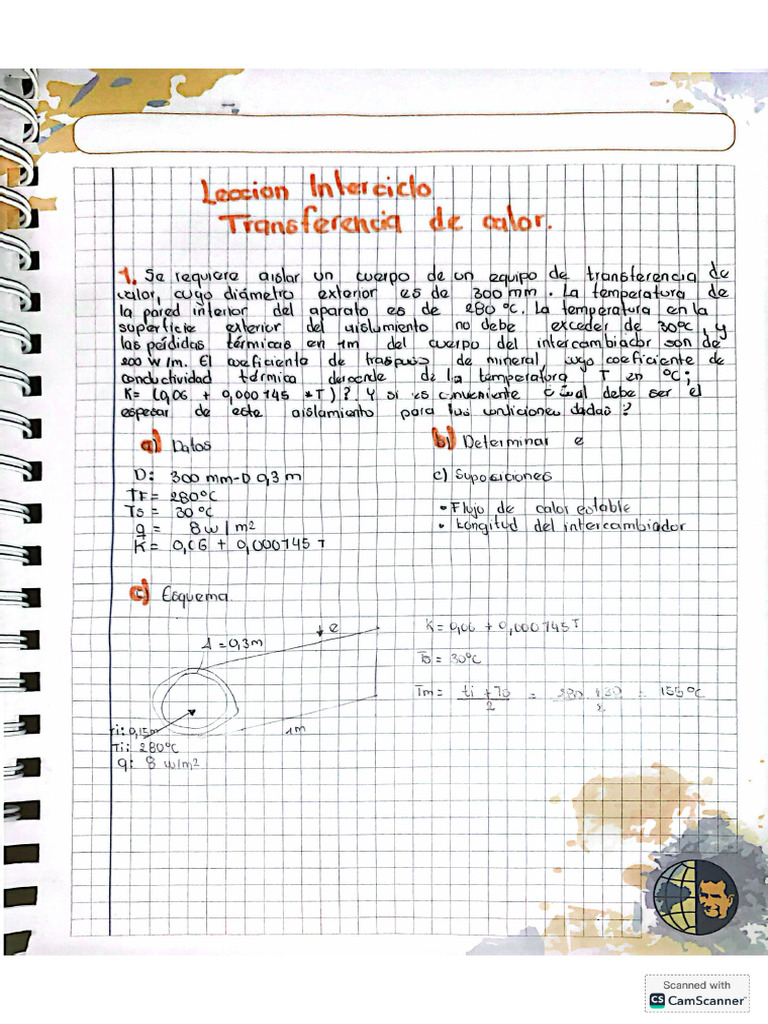 Leccion Interciclo
Transferencia de calor.
1. Se requiere aislar un cuerpo de un equipo de transferencia de
calor, cuyo diámetro exterior es de 300 mm. La temperatura de
la pared interior del aparato es de 280 °C. La temperatura en la
superficie exterior del aislamiento no debe exceder de 30°C, y
las pérdidas térmicas en 1m del cuerpo del intercambiador son de
200 W/m. El coeficiente de de mineral, cuyo coeficiente de
conductividad térmica depende de la temperatura T en °C;
K= (0,06 + 0,000145 *T)? Y si es conveniente cual debe ser el
espesor de este aislamiento para las condiciones dadas?
a) Datos
b) Determinar e
D: 300 mm-D 0,3 m
c) Suposiciones
TF= 280°C
Ts= 30°C
• Flujo de calor estable
q= 8w/m²
• Longitud del intercambiador
K= 0,06 + 0,000145 T
c) Esquema
A=0,3m
e
K= 0,06 + 0,000145T
To= 30°C
Tm= ti+To/2 = 280+30/2 = 155°C
1m
ri: 0,15m
Ti: 280°C
q: 8 w/m²
Scanned with
CS CamScanner